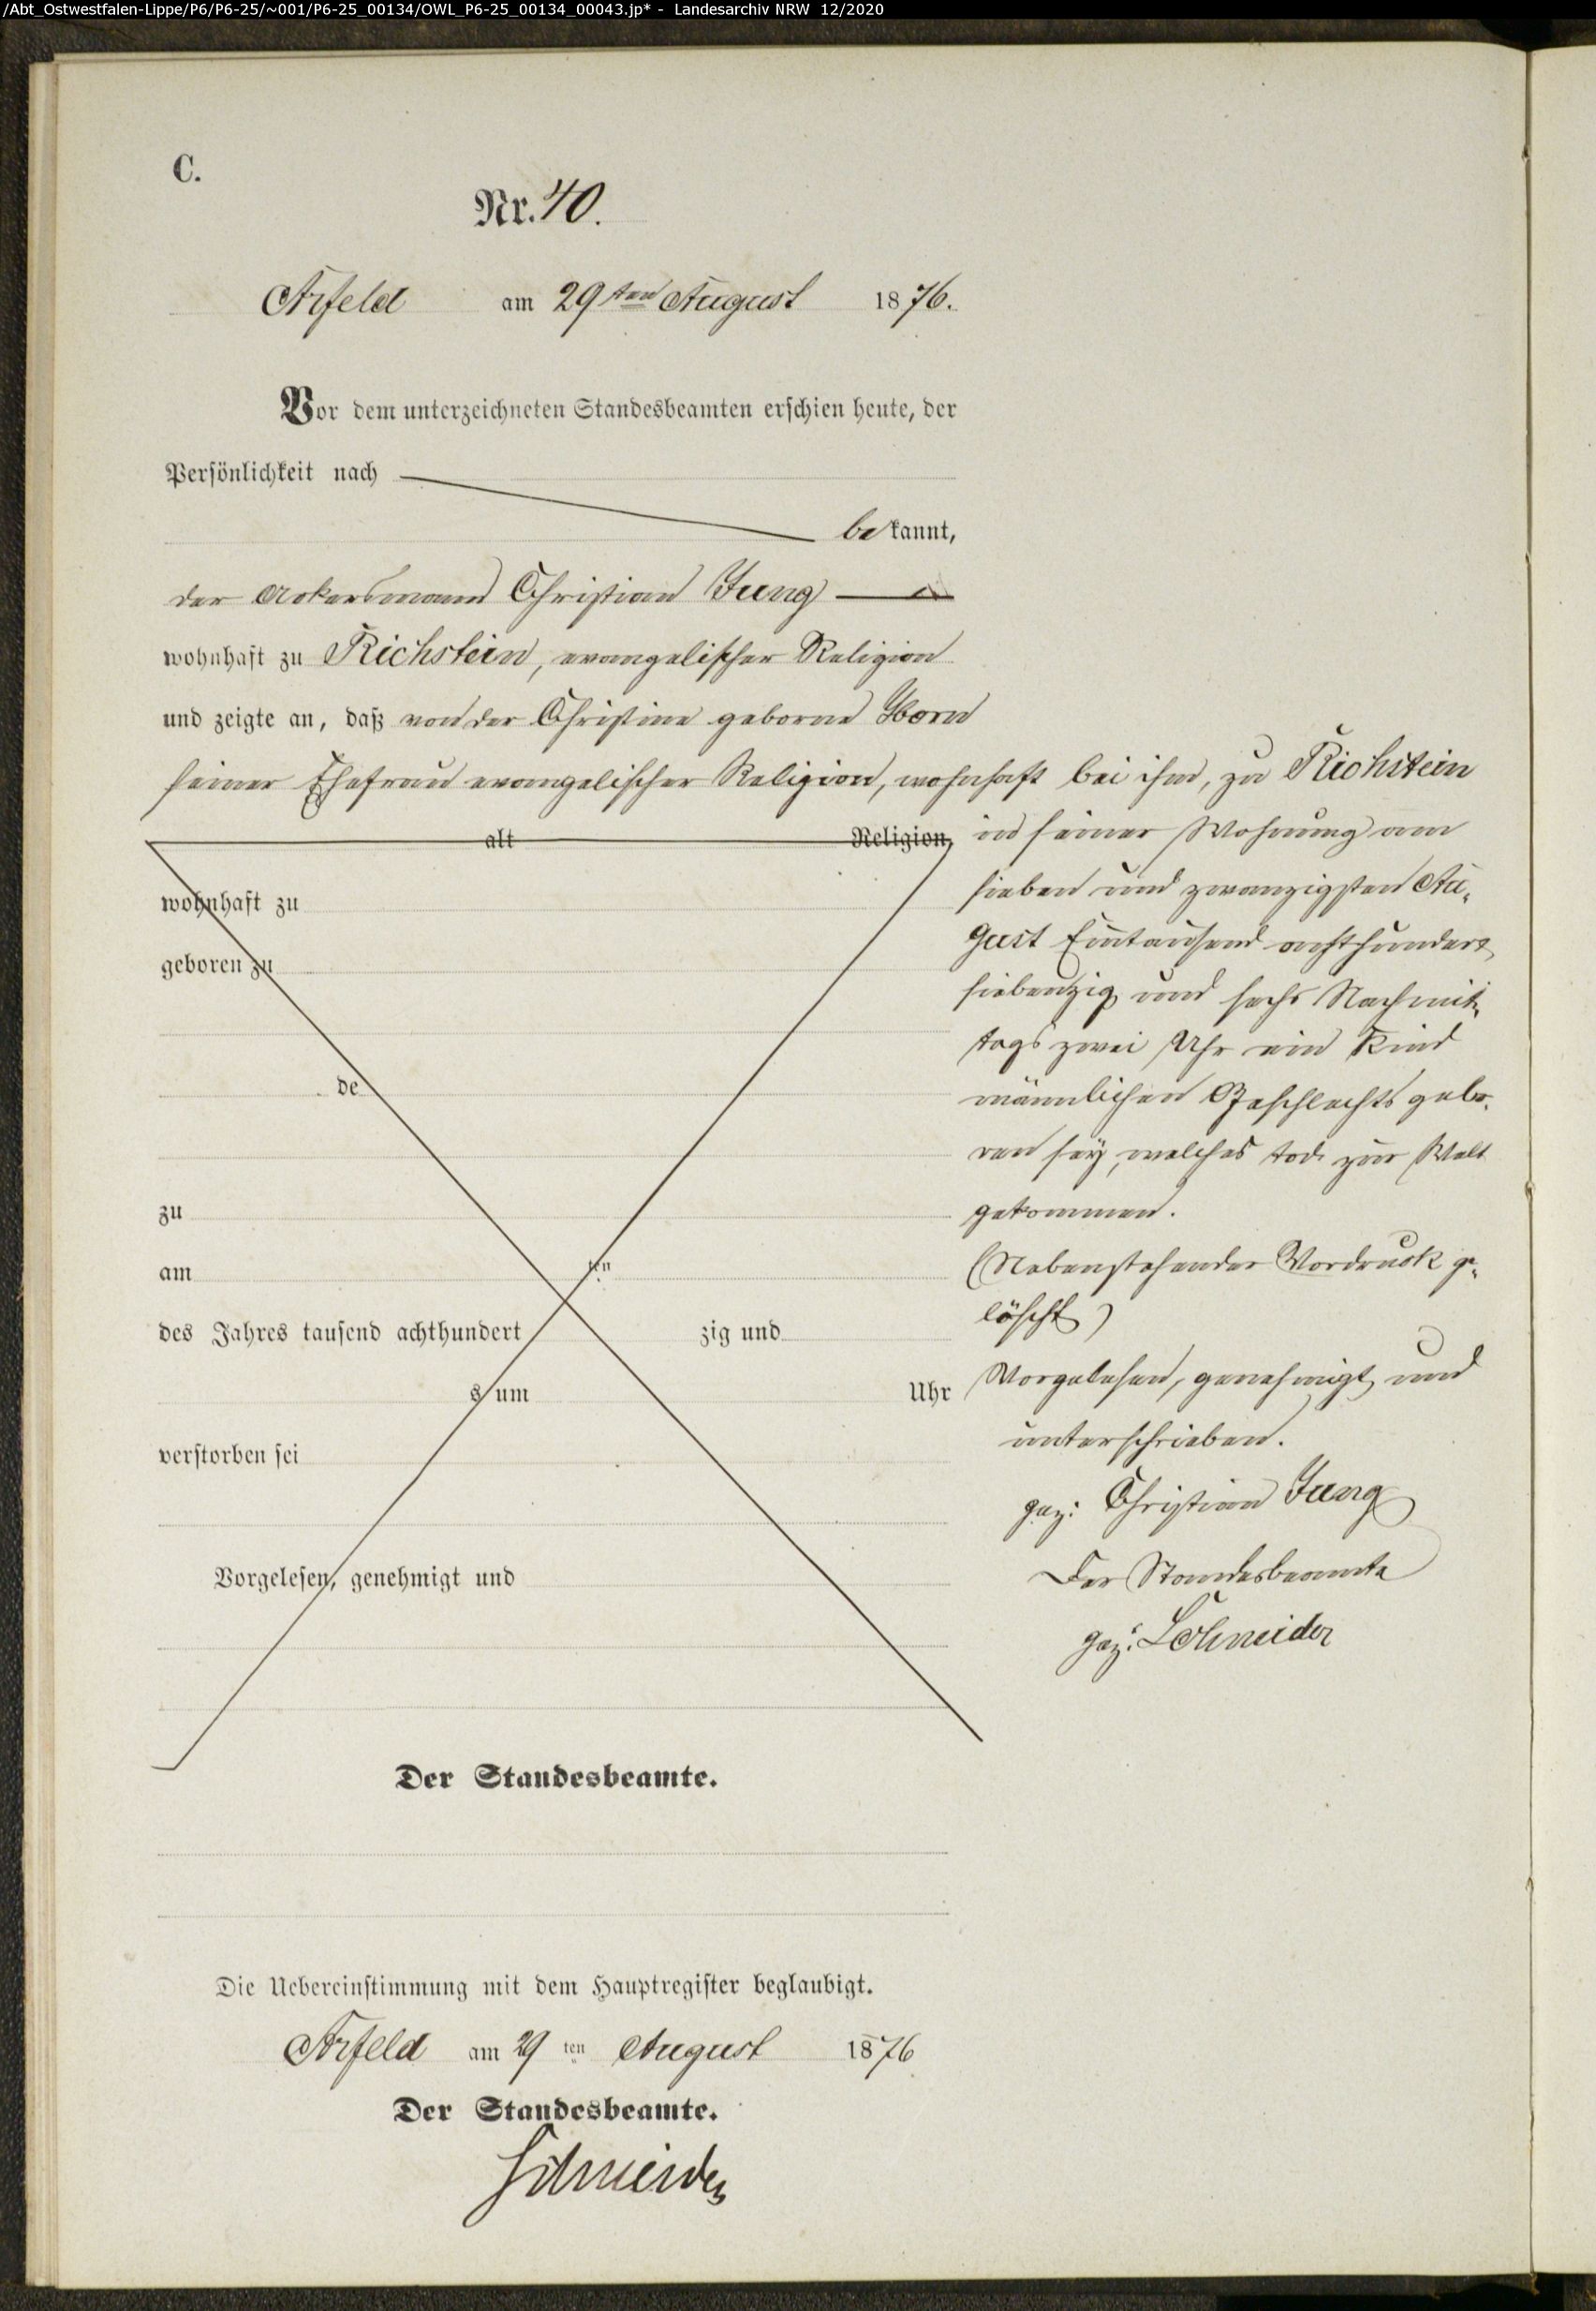 /Abt_Ostwestfalen-Lippe/P6/P6-25/~001/P6-25_00134/OWL_P6-25_00134_00043.jp* - Landesarchiv NRW 12/2020
C.
Nr. 40.
Arfeld am 29ten August 1876.
Vor dem unterzeichneten Standesbeamten erschien heute, der
Persönlichkeit nach
bekannt,
der Ackersmann Christian Jung
wohnhaft zu Richstein, evangelischer Religion
und zeigte an, daß von der Christine geborne Born
seiner Ehefrau evangelischer Religion, wohnhaft bei ihm, zu Richstein
alt Religion,
wohnhaft zu
geboren zu
de
zu
am ten
des Jahres tausend achthundert zig und
s um Uhr
verstorben sei
Vorgelesen, genehmigt und
in seiner Wohnung am
sieben und zwanzigsten Au-
gust Eintausend achthundert
siebenzig und sechs Nachmit-
tags zwei Uhr ein Kind
männlichen Geschlechts gebo-
ren sey, welches tod zur Welt
gekommen.
(Nebenstehender Vordruck ge-
löscht)
Vorgelesen, genehmigt und
unterschrieben.
gez: Christian Jung
Der Standesbeamte
gez: Schneider
Der Standesbeamte.
Die Uebereinstimmung mit dem Hauptregister beglaubigt.
Arfeld am 29 ten August 1876
Der Standesbeamte.
Schneider